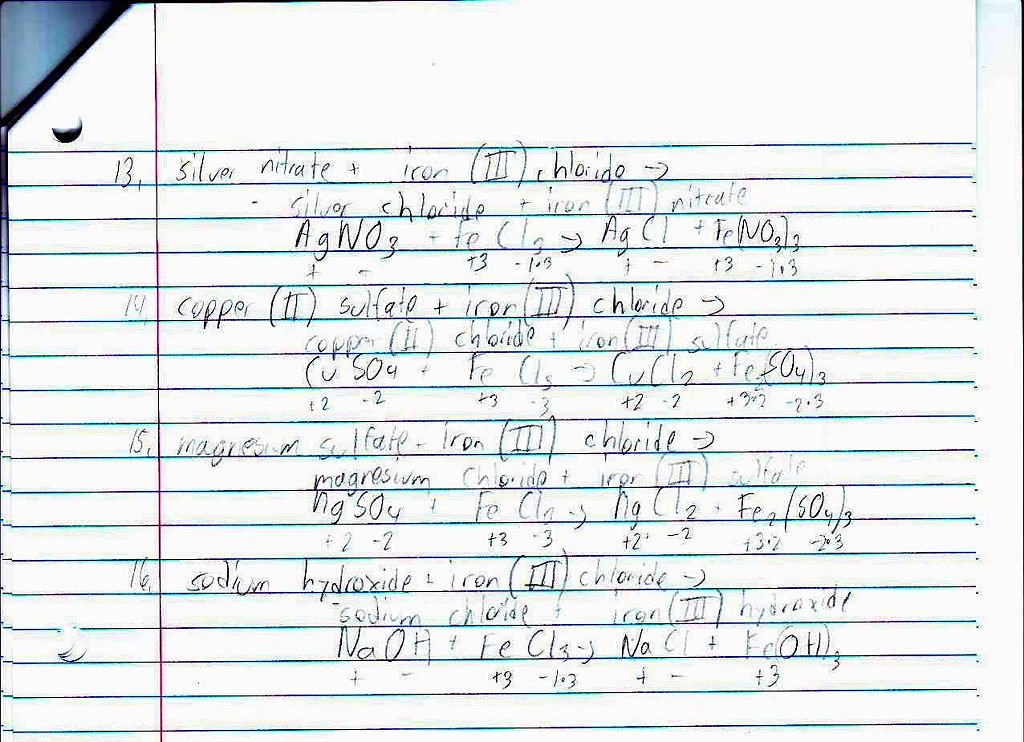 13. silver nitrate + iron (III) chloride →
- silver chloride + iron (III) nitrate
AgNO3 + FeCl3 → AgCl + Fe(NO3)3
+ - +3 -1·3 + - +3 -1·3
14. copper (II) sulfate + iron (III) chloride →
copper (II) chloride + iron (III) sulfate
CuSO4 + FeCl3 → CuCl2 + Fe2(SO4)3
+2 -2 +3 -3 +2 -2 +3·2 -2·3
15. magnesium sulfate - iron (III) chloride →
magnesium chloride + iron (III) sulfate
MgSO4 + FeCl3 → MgCl2 + Fe2(SO4)3
+2 -2 +3 -3 +2 -2 +3·2 -2·3
16. sodium hydroxide + iron (III) chloride →
sodium chloride + iron (III) hydroxide
NaOH + FeCl3 → NaCl + Fe(OH)3
+ - +3 -1·3 + - +3